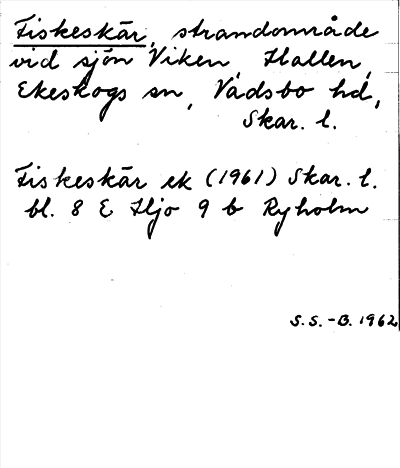 Fiskeskär, strandområde
vid sjön Viken, Hallen,
Ekeskogs sn, Vadsbo hd,
Skar. l.
Fiskeskär ek (1961) Skar. l.
bl. 8 E Hjo 9 b Ryholm
S.S.-B. 1962